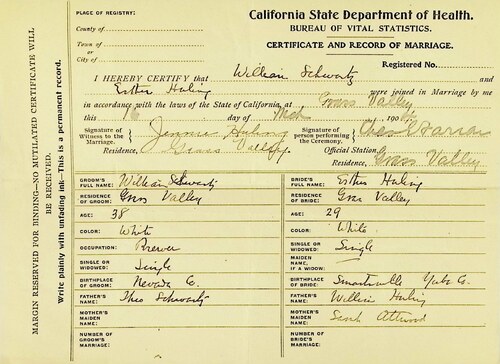 California State Department of Health.
BUREAU OF VITAL STATISTICS.
CERTIFICATE AND RECORD OF MARRIAGE.
PLACE OF REGISTRY:
County of
Town of
or
City of
Registered No.
I HEREBY CERTIFY that William Schwartz and
Esther Huling were joined in Marriage by me
in accordance with the laws of the State of California, at Grass Valley
this 16 day of Mch 190
Signature of Witness to the Marriage, Jennie Huling
Signature of person performing the Ceremony,
Residence, Grass Valley.
Official Station, Grass Valley
GROOM'S FULL NAME: William Schwartz
RESIDENCE OF GROOM: Grass Valley
AGE: 38
COLOR: White
OCCUPATION: Brewer
SINGLE OR WIDOWED: Single
BIRTHPLACE OF GROOM: Nevada Co.
FATHER'S NAME: Theo Schwartz
MOTHER'S MAIDEN NAME:
NUMBER OF GROOM'S MARRIAGE:
BRIDE'S FULL NAME: Esther Huling
RESIDENCE OF BRIDE: Grass Valley
AGE: 29
COLOR: White
SINGLE OR WIDOWED: Single
MAIDEN NAME, IF A WIDOW:
BIRTHPLACE OF BRIDE: Smartsville Yuba Co.
FATHER'S NAME: William Huling
MOTHER'S MAIDEN NAME: Sarah Attwood
NUMBER OF BRIDE'S MARRIAGE:
MARGIN RESERVED FOR BINDING—NO MUTILATED CERTIFICATE WILL
BE RECEIVED.
Write plainly with unfading ink—This is a permanent record.